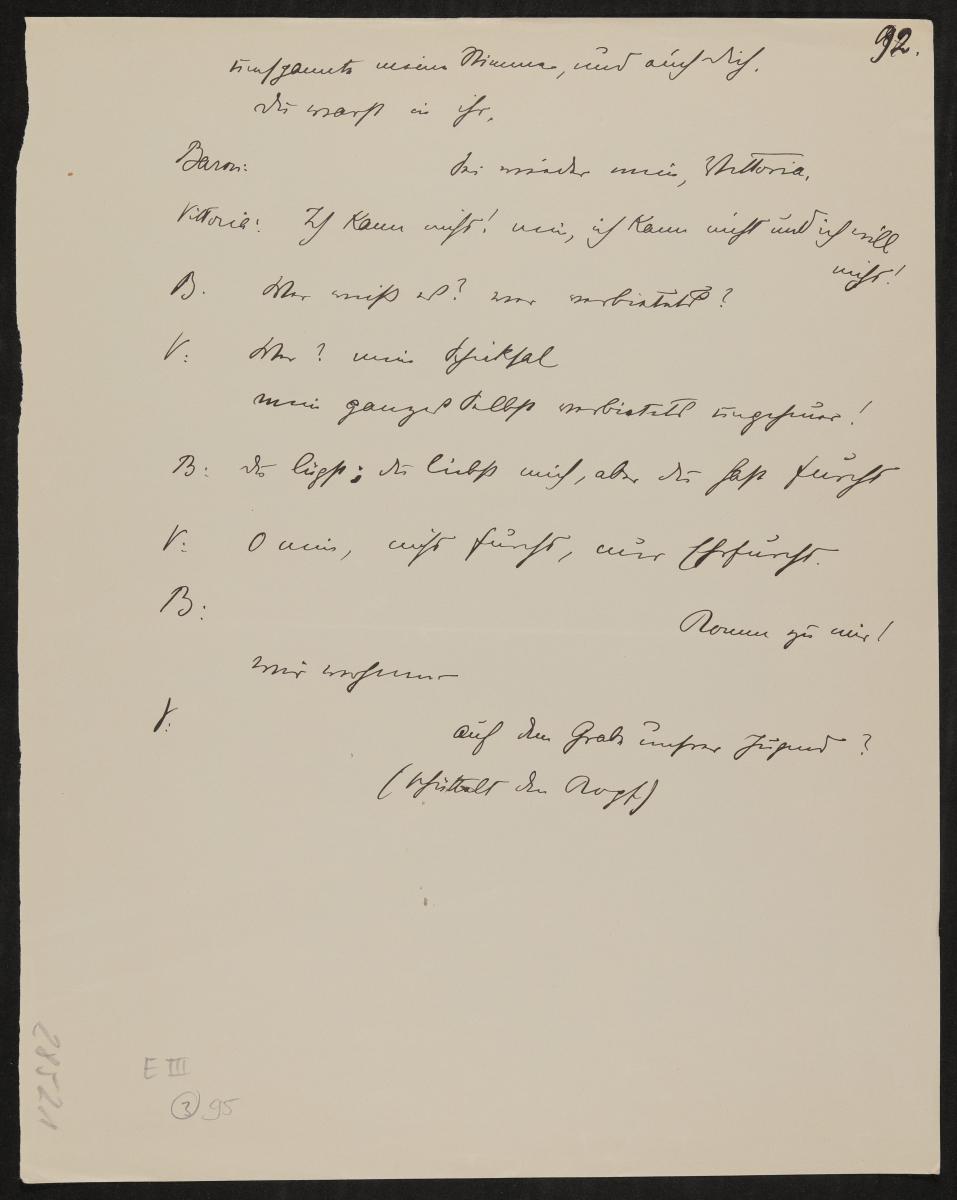 92.
umspannte meine Stimme, und auch dich.
du warst in ihr.
Baron: Sei wieder mein, Vittoria.
Vittoria: Ich kann nicht! nein, ich kann nicht und ich will
nicht!
B. Wer weiß es? wer verbietets?
V: Wer? mein Schicksal
mein ganzes Selbst verbietets ungeheuer!
B: du lügst; du liebst mich, aber du hast Furcht
V: O nein, nicht Furcht, nur Ehrfurcht.
B: Komm zu mir!
wir wohnen
V: auf dem Grab unsrer Jugend?
(schüttelt den Kopf)
E III
3 95
28521